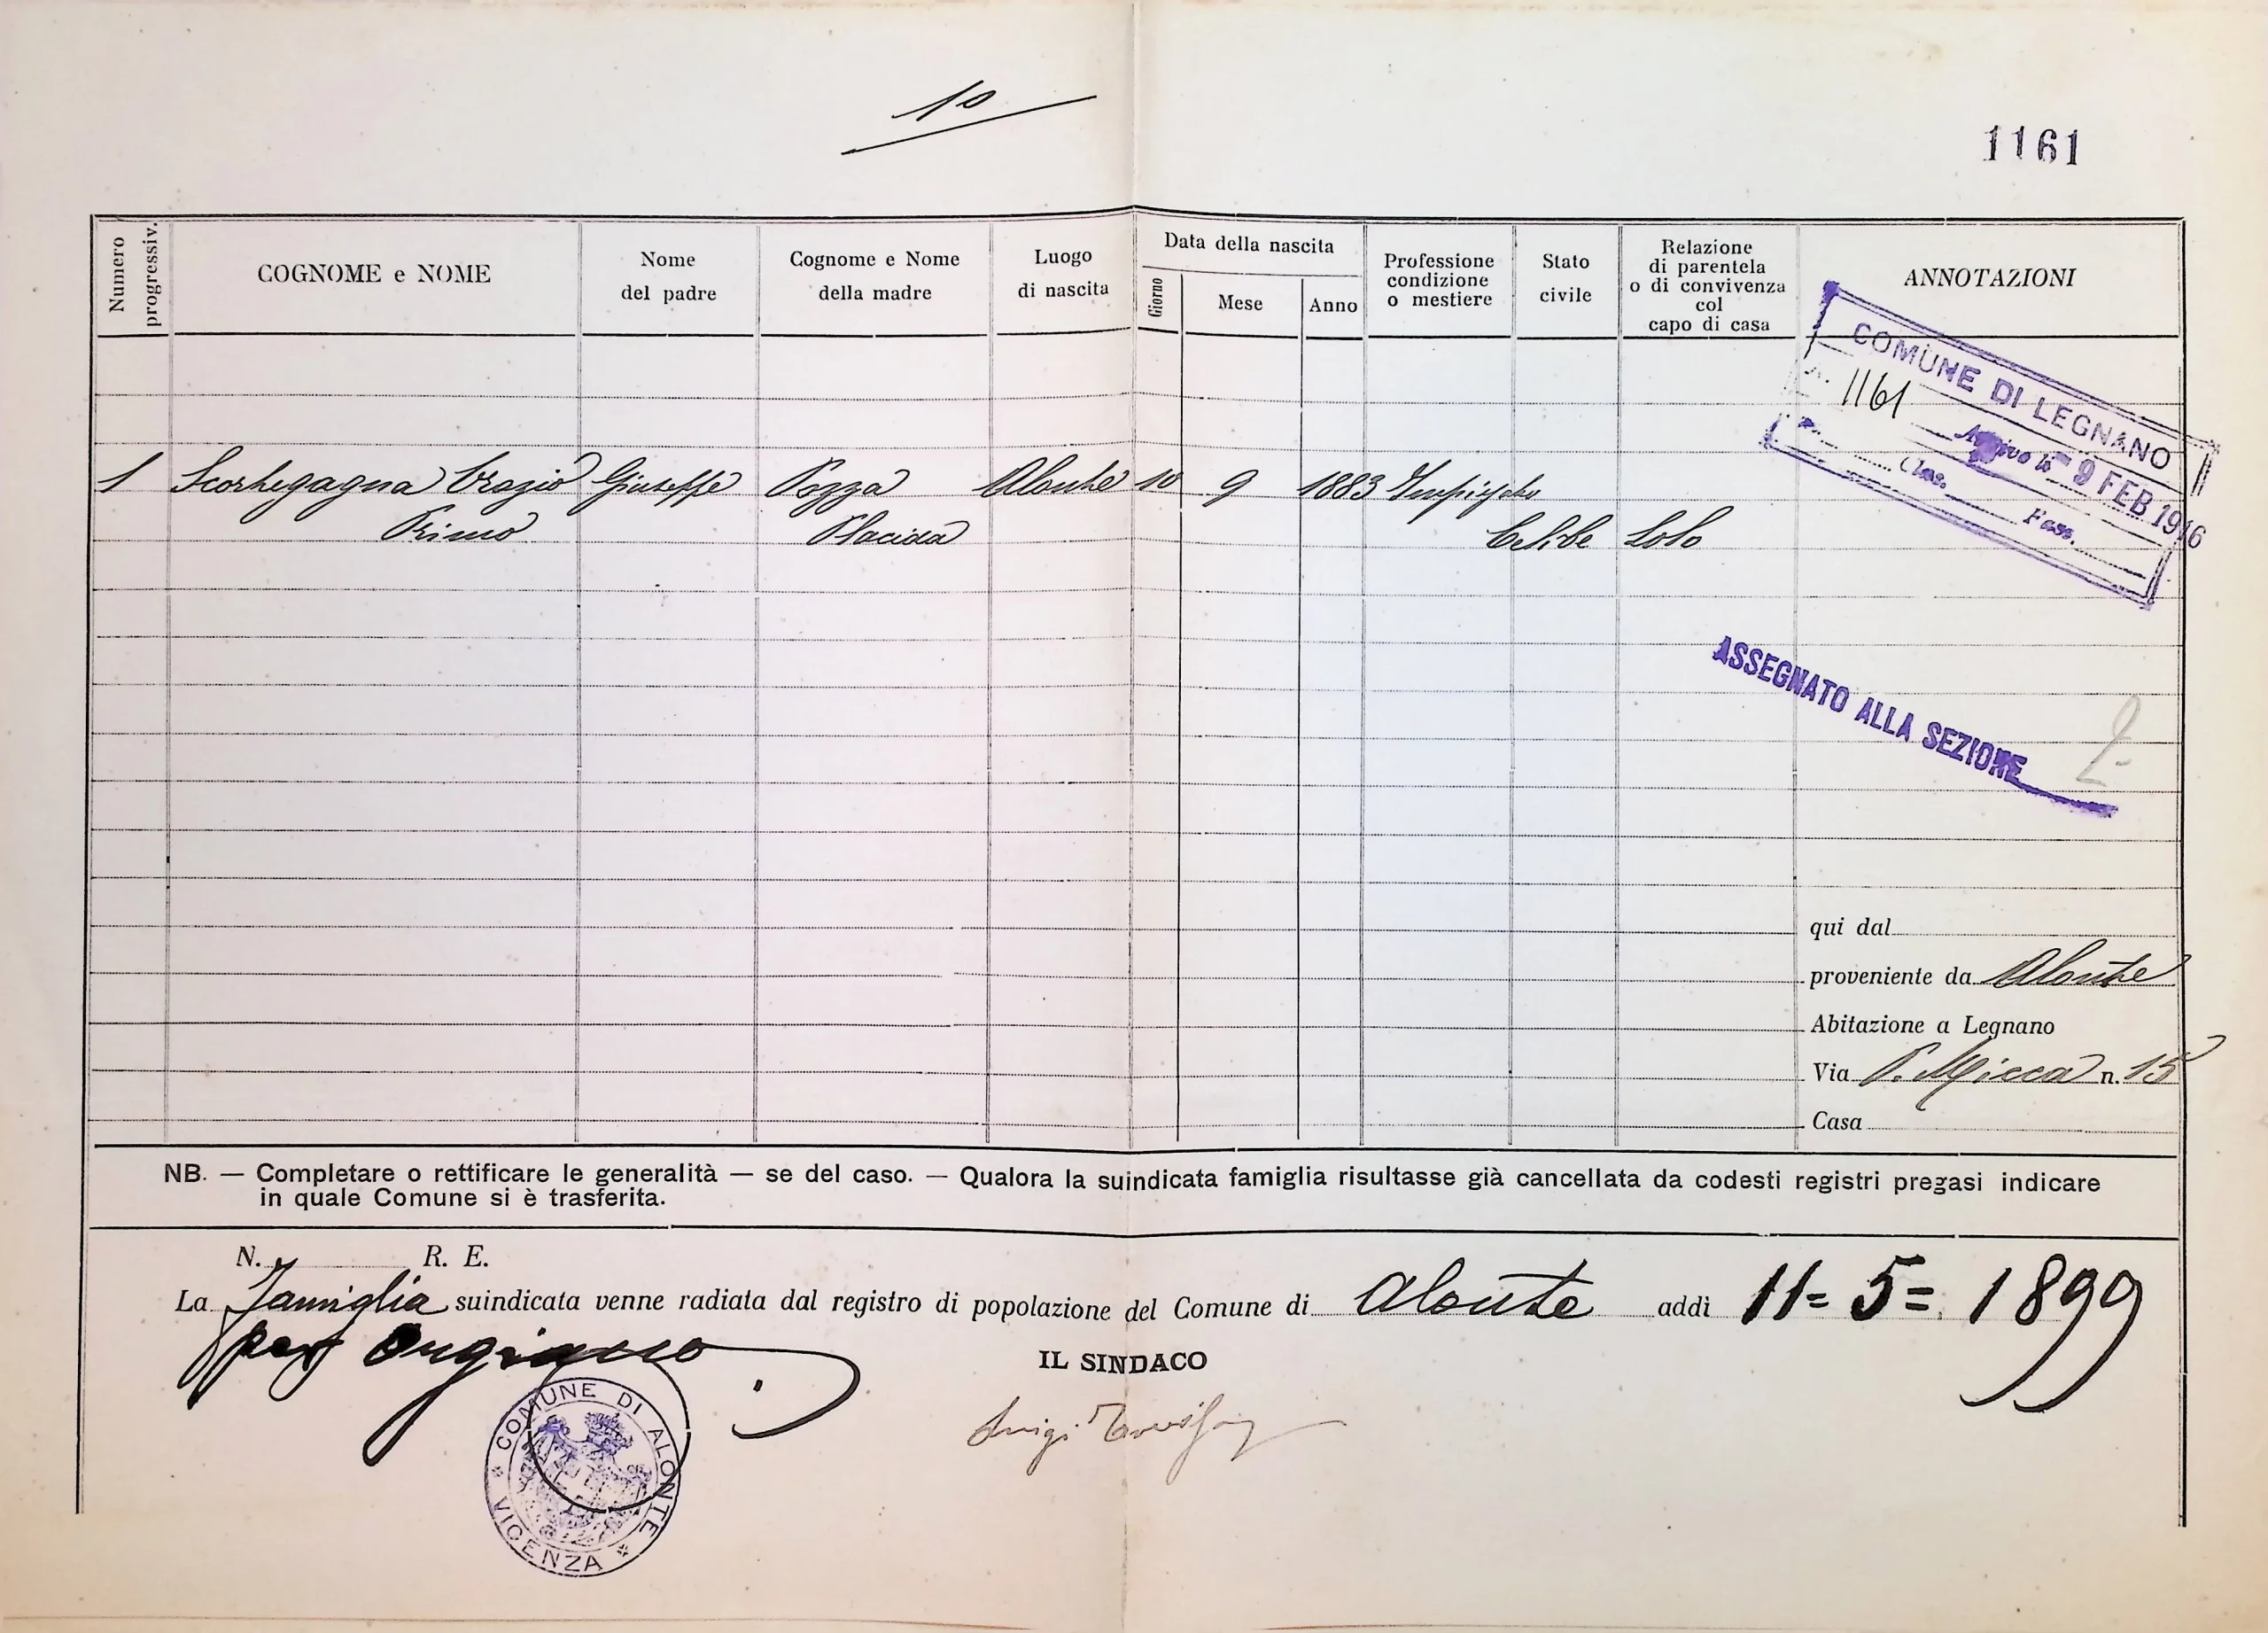 10
1161
Numero progressiv.
COGNOME e NOME
Nome
del padre
Cognome e Nome
della madre
Luogo
di nascita
Data della nascita
Giorno
Mese
Anno
Professione
condizione
o mestiere
Stato
civile
Relazione
di parentela
o di convivenza
col
capo di casa
ANNOTAZIONI
COMUNE DI LEGNANO
1161
Arrivo le 9 FEB 1916
Clas. Fasc.
1 Scortegagna Orazio Giuseppe Pozza Alonte 10 9 1883 Impiegato
Primo Placida Celibe Solo
ASSEGNATO ALLA SEZIONE 2
qui dal
proveniente da Alonte
Abitazione a Legnano
Via P. Micca n. 15
Casa
NB. — Completare o rettificare le generalità — se del caso. — Qualora la suindicata famiglia risultasse già cancellata da codesti registri pregasi indicare
in quale Comune si è trasferita.
N. R. E.
La famiglia suindicata venne radiata dal registro di popolazione del Comune di Alonte addì 11=5=1899
per Orgiano
IL SINDACO
Luigi
COMUNE DI ALONTE
* VICENZA *